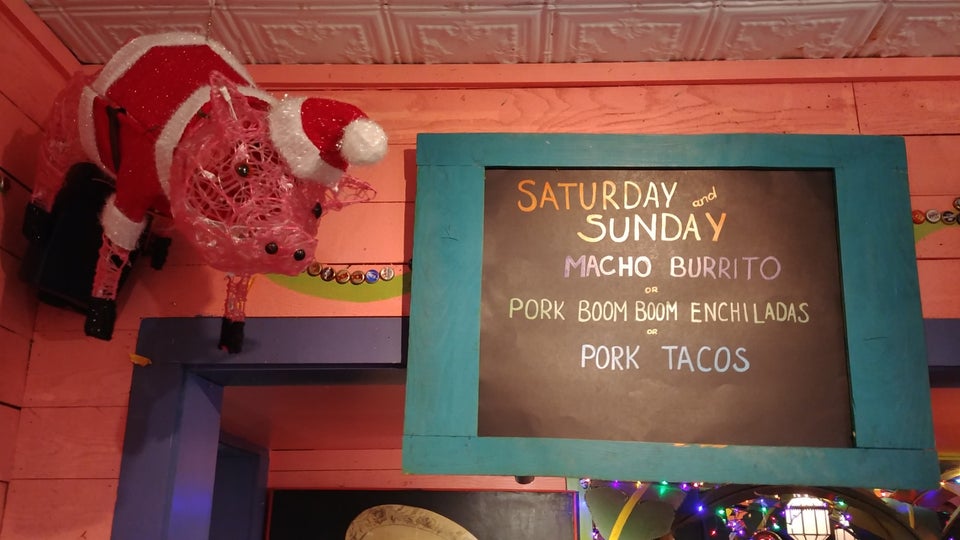 SATURDAY and
SUNDAY
MACHO BURRITO
OR
PORK BOOM BOOM ENCHILADAS
OR
PORK TACOS